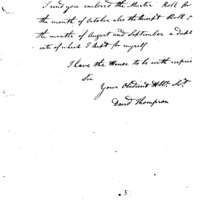 I send you enclosed the Muster Roll for
the month of October also the Receipt Roll for
the months of August and September a dupli
cate of which I kept for myself
I have the Honor to be with respect
Sir
Your Obedient Hble. St.
David Thompson